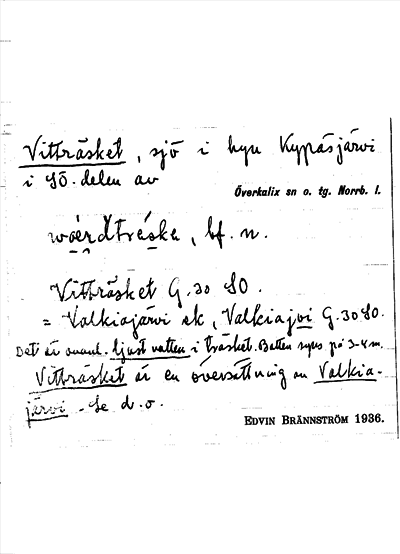 Vitträsket, sjö i byn Kypäsjärvi
i SÖ. delen av
Överkalix sn o. tg. Norrb. l.
bf. n.
Vitträsket G. 30 SO.
= Valkiajärvi ek, Valkiajoi G. 30 SO.
Det är ovanl. ljust vatten i träsket. Botten synes på 3-4 m.
Vitträsket är en översättning av Valkia-
järvi. Se d. o.
EDVIN BRÄNNSTRÖM 1936.